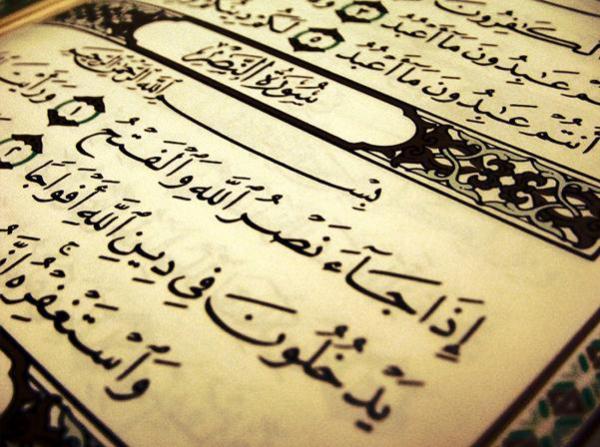 ٱلْكَٰفِرُونَ
مَآ أَعْبُدُ ٣
أَنتُمْ عَٰبِدُونَ مَآ أَعْبُدُ ٥ لَكُمْ دِينُكُمْ
سُورَةُ النَّصْرِ
بِسْمِ ٱللَّهِ ٱلرَّحْمَٰنِ ٱلرَّحِيمِ
إِذَا جَآءَ نَصْرُ ٱللَّهِ وَٱلْفَتْحُ ١ وَرَأَيْتَ
يَدْخُلُونَ فِى دِينِ ٱللَّهِ أَفْوَاجًا ٢
وَٱسْتَغْفِرْهُ